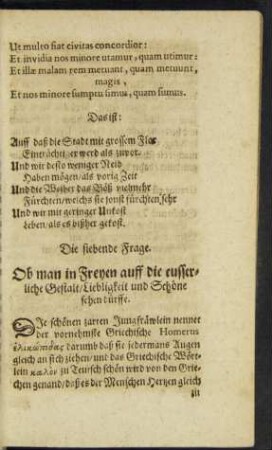 Ut multo fiat civitas concordior:
Et invidia nos minore utamur, quam utimur:
Et illæ malam rem metuant, quam metuunt,
magis,
Et nos minore sumptu simus, quam sumus.
Das ist:
Auff daß die Stadt mit grossem
Einträchtiger werd als zuvor.
Und wir desto weniger Neid
Haben mögen/als vorig Zeit
Und die Weiber das Böß vielmehr
Fürchten/welchs sie sonst fürchten sehr
Und wir mit geringer Unkost
Leben/als es bißher gekost.
Die siebende Frage.
Ob man in Freyen auff die eusser-
liche Gestalt/Liebligkeit und Schöne
sehen dürffe.
DJe schönen zarten Jungfräwlein nennet
der vornehmste Griechische Homerus
ἑλικώπιδας darumb daß sie jedermans Augen
gleich an sich ziehen/und das Griechische Wört-
lein καλὸν zu Teutsch schön wird von den Grie-
chen genand/daß es der Menschen Hertzen gleich
zu